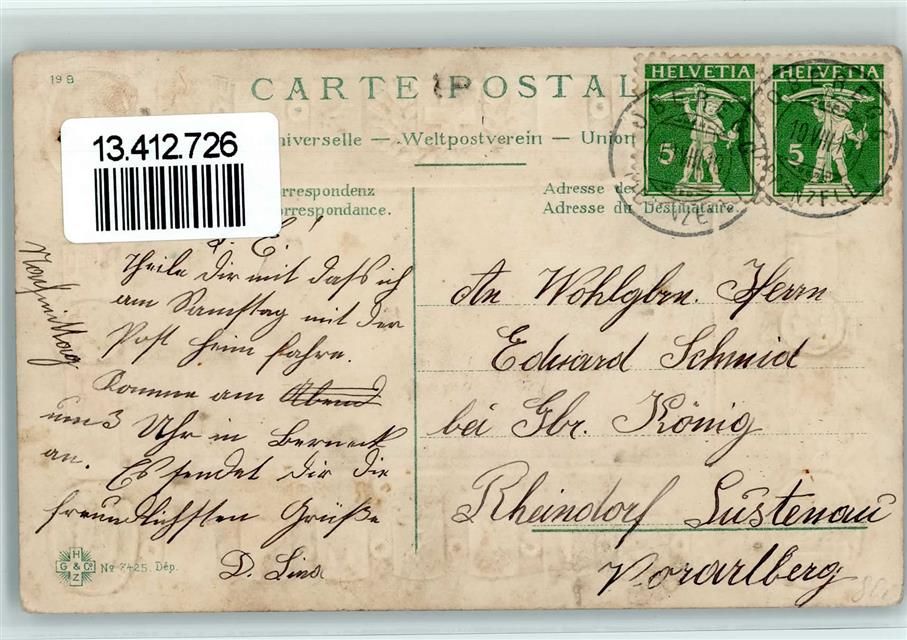 19 B
CARTE POSTAL
HELVETIA
HELVETIA
5
5
13.412.726
niverselle — Weltpostverein — Union
rrespondenz
rrespondance.
Adresse de
Adresse du Destinataire.
Nachmittag
Theile dir mit dass ich
am Samstag mit der
Post heim fahre.
Komme am Abend
um 3 Uhr in Berneck
an. Es sendet dir die
freundlichsten Grüße
D. Lina
An Wohlgbrn. Herrn
Eduard Schmid
bei Gbr. König
Rheindorf Lustenau
Vorarlberg
H G & Co Z
No 7425. Dép.